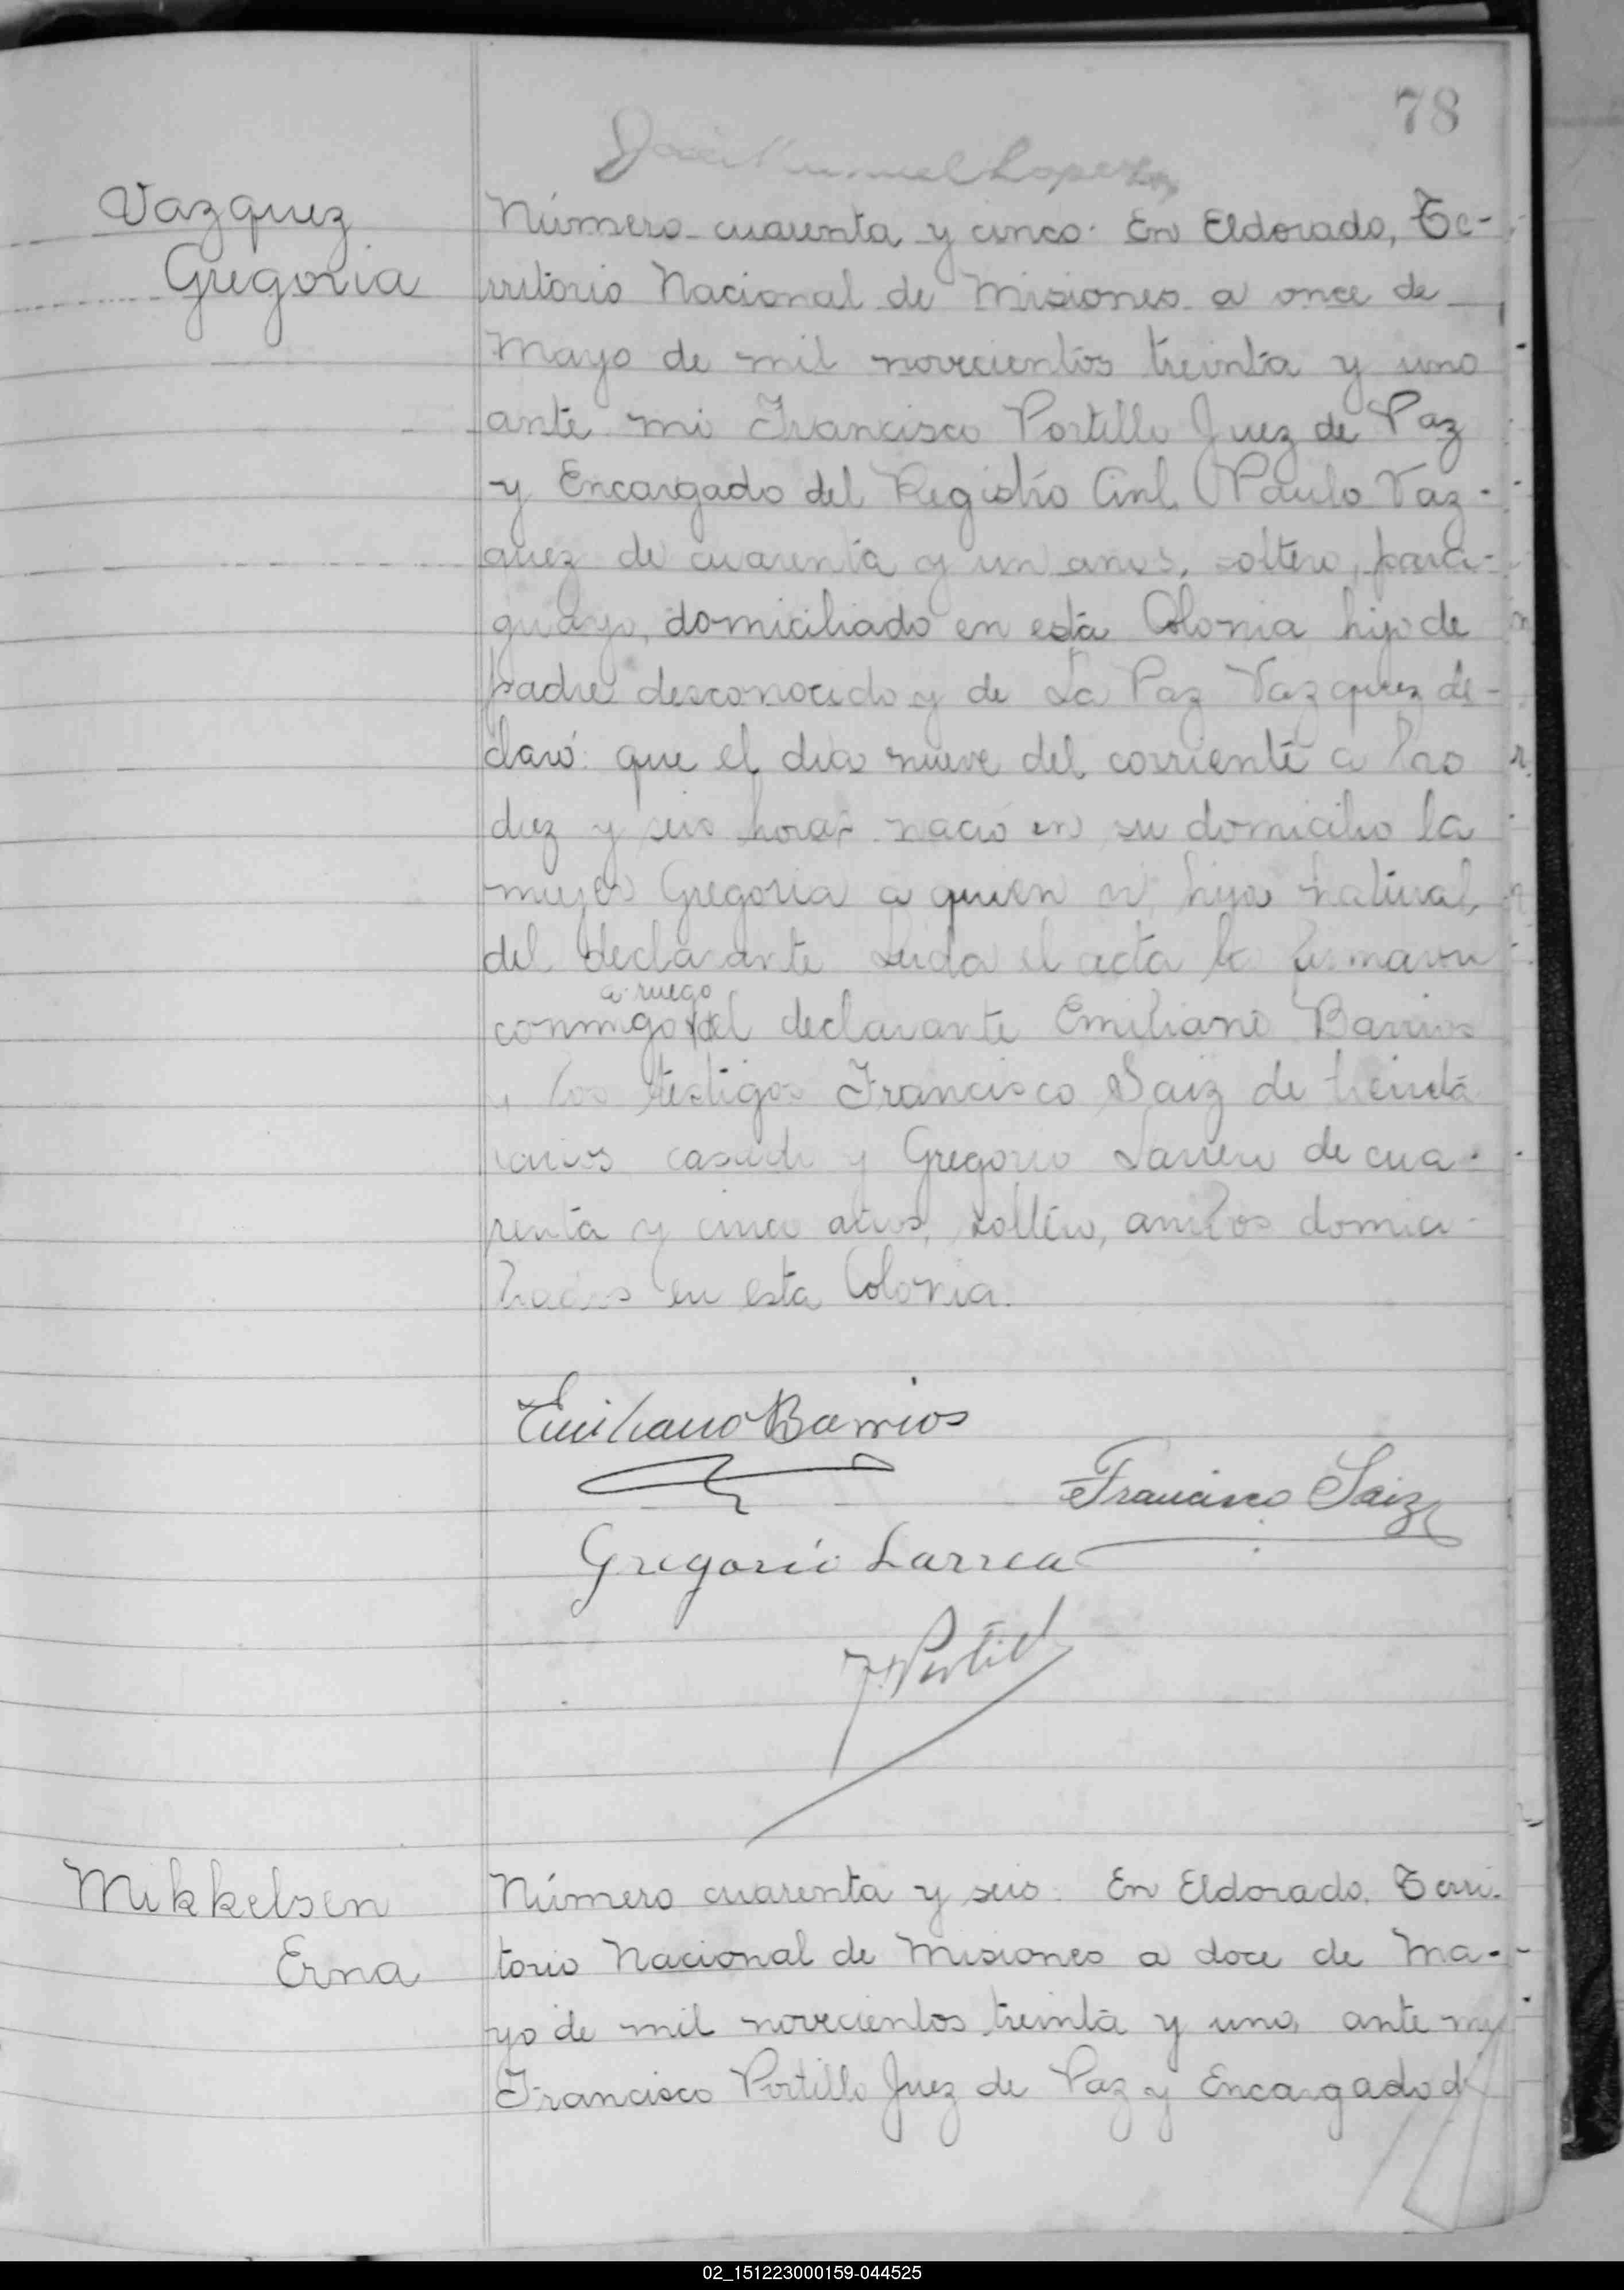 78
Lopez
Vazquez
Gregoria
Número cuarenta y cinco. En Eldorado, Te-
rritorio Nacional de Misiones a once de
Mayo de mil novecientos treinta y uno
ante mi Francisco Portillo Juez de Paz
y Encargado del Registro Civil, Paulo Vaz-
quez de cuarenta y un anos, soltero, para-
guayo, domiciliado en esta Colonia hijo de
padre desconocido y de La Paz Vazquez de-
claró: que el dia nueve del corriente a las
diez y seis horas nació en su domicilio la
mujer Gregoria a quien vi, hija natural
del declarante Leida el acta la firmaron
a ruego
conmigo del declarante Emiliano Barrios
y los testigos Francisco Saiz de treinta
casado y Gregorio de cua-
renta y cinco años, soltero, ambos domici-
liados en esta Colonia.
Emiliano Barrios
Francisco Saiz
Gregorio Larrea
F. Portillo
Mikkelsen
Erna
Número cuarenta y seis. En Eldorado, Terri-
torio Nacional de Misiones a doce de Ma-
yo de mil novecientos treinta y uno, ante mi
Francisco Portillo Juez de Paz y Encargado d
02_151223000159-044525